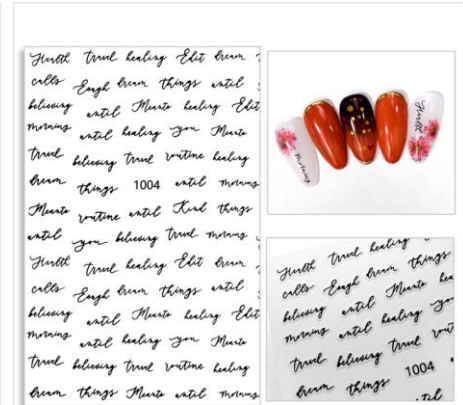 Health travel healing Edit dream
calls Eough dream things until
believing until Means healing Edit
morning until healing you Means
travel believing travel routine healing
dream things 1004 until morning
Means routine until Kind things
until you believing travel morning
Health travel healing Edit dream
calls Eough dream things until
believing until Means healing Edit
morning until healing you Means
travel believing travel routine healing
dream things Means until morning
morning
Health
Health travel healing
calls Eough dream things
believing until Means
morning until healing you
travel believing travel
dream things 1004